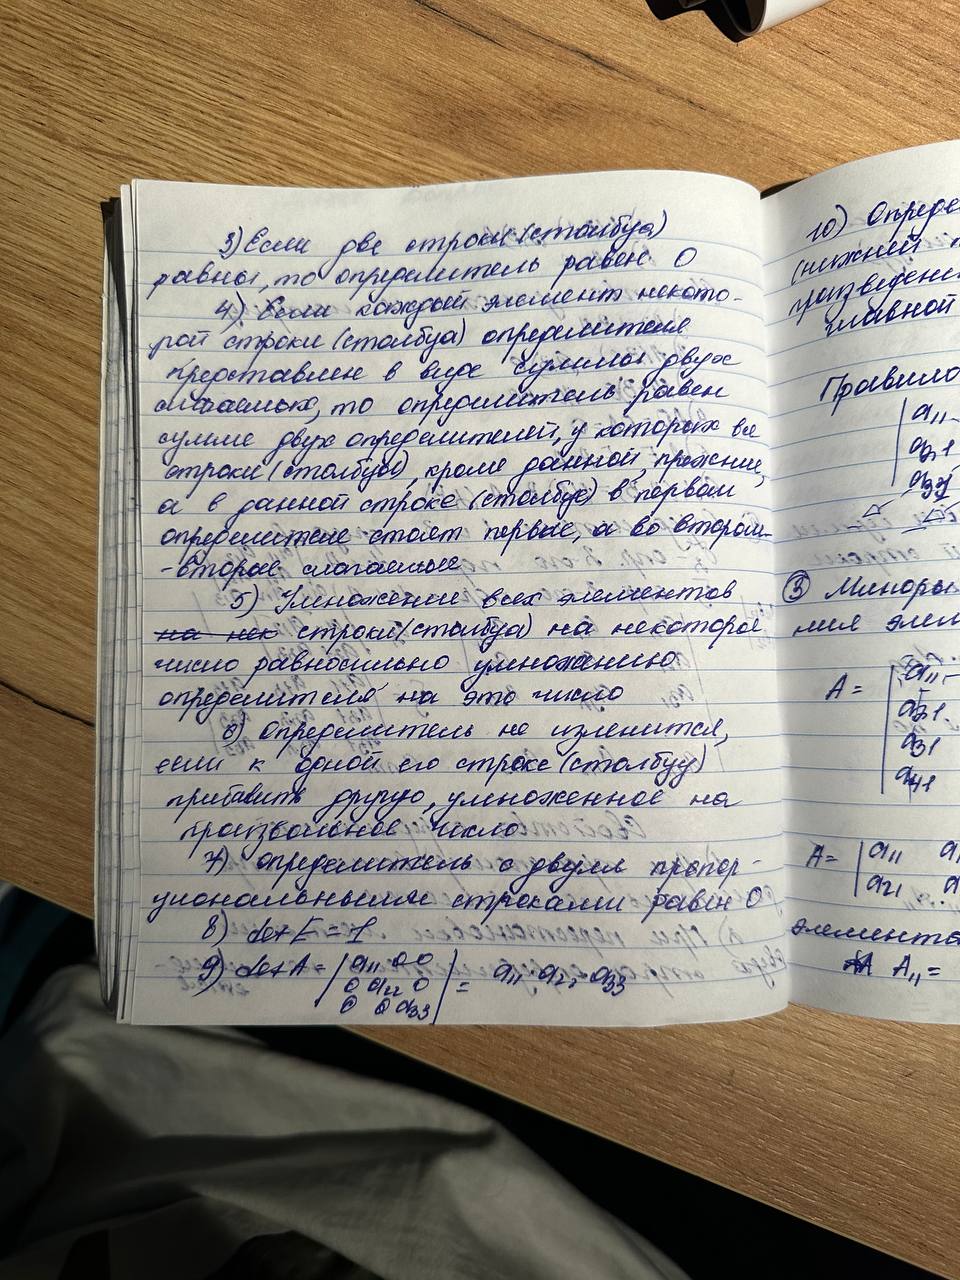 3) Если две строки (столбца)
равны, то определитель равен 0
4) Если каждый элемент некото-
рой строки (столбца) определителя
представлен в виде суммы двух
слагаемых, то определитель равен
сумме двух определителей, у которых все
строки (столбцы), кроме данной, прежние,
а в данной строке (столбце) в первом
определителе стоят первые, а во втором-
-вторые слагаемые
5) Умножение всех элементов
на нек строки (столбца) на некоторое
число равносильно умножению
определителя на это число
6) Определитель не изменится,
если к одной его строке (столбцу)
прибавить другую, умноженное на
произвольное число
7) определитель с двумя пропор-
циональными строками равен 0
8) det E = 1
9) det A = | a11 0 0
0 a22 0
0 0 a33 | = a11 · a22 · a33
10) Опреде
(нижней
произведен
главной
Правило
a11
a21
③ Миноры
ния элем
A = | a11
a21
a31
a41
A = | a11
a21
элемента
A11 =